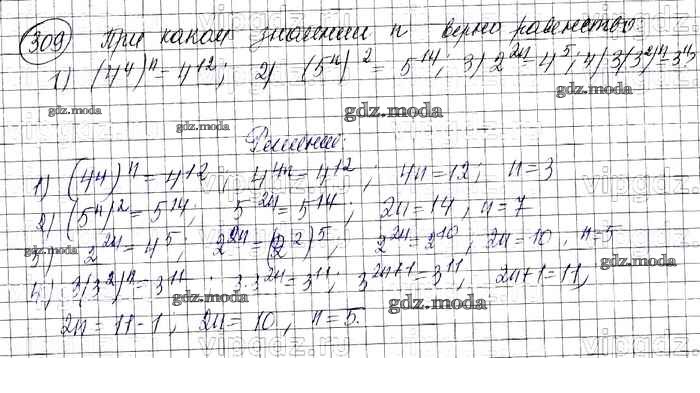 309 При каком значении n верно равенство
1) (4⁴)ⁿ = 4¹²; 2) (5ⁿ)² = 5¹⁴; 3) 2²ⁿ = 4⁵; 4) 3(3²)ⁿ = 3¹¹
gdz.moda gdz.moda gdz.moda gdz.moda
Решение:
1) (4⁴)ⁿ = 4¹², 4⁴ⁿ = 4¹²; 4n = 12; n = 3
2) (5ⁿ)² = 5¹⁴; 5²ⁿ = 5¹⁴; 2n = 14, n = 7
3) 2²ⁿ = 4⁵; 2²ⁿ = (2²)⁵, 2²ⁿ = 2¹⁰, 2n = 10, n = 5
4) 3(3²)ⁿ = 3¹¹; 3·3²ⁿ = 3¹¹, 3²ⁿ⁺¹ = 3¹¹, 2n+1 = 11,
gdz.moda gdz.moda gdz.moda gdz.moda
2n = 11-1, 2n = 10, n = 5.
vipgdz.ru